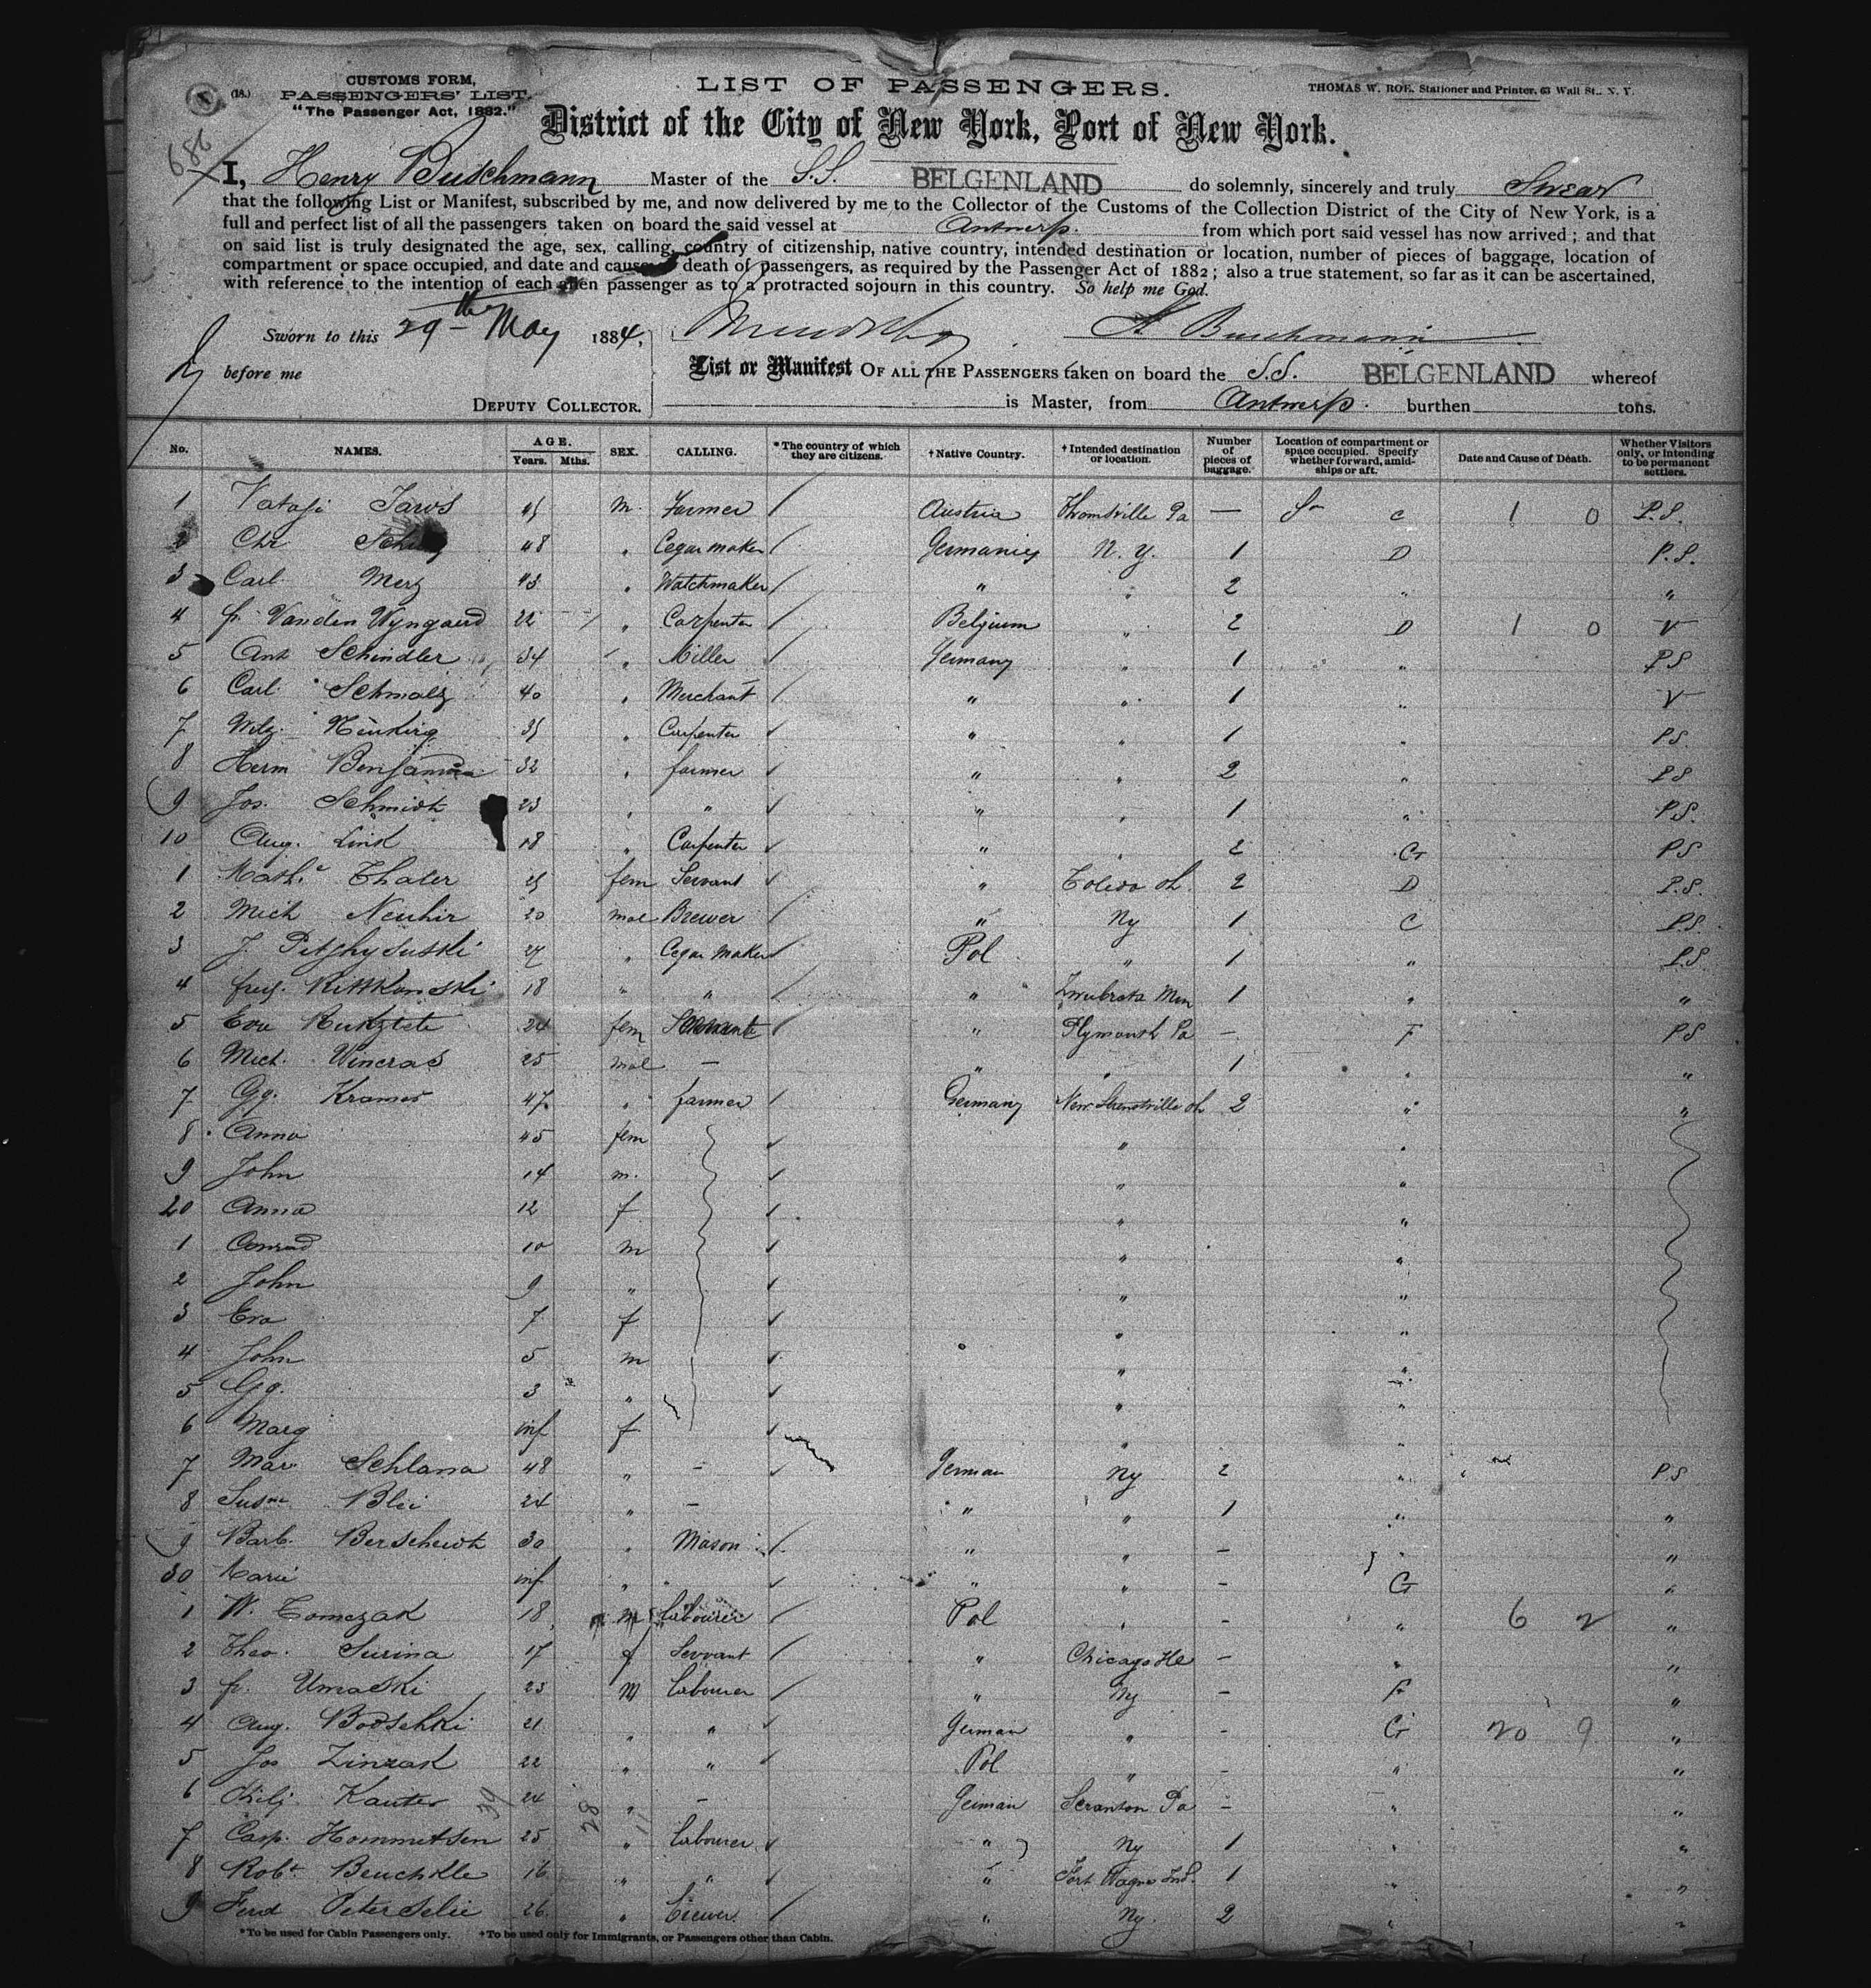 (18.)
CUSTOMS FORM,
PASSENGERS' LIST.
"The Passenger Act, 1882."
LIST OF PASSENGERS.
THOMAS W. ROE, Stationer and Printer, 63 Wall St., N. Y.
District of the City of New York, Port of New York.
I, Henry Buschmann Master of the S.S. BELGENLAND do solemnly, sincerely and truly Swear
that the following List or Manifest, subscribed by me, and now delivered by me to the Collector of the Customs of the Collection District of the City of New York, is a
full and perfect list of all the passengers taken on board the said vessel at Antwerp. from which port said vessel has now arrived; and that
on said list is truly designated the age, sex, calling, country of citizenship, native country, intended destination or location, number of pieces of baggage, location of
compartment or space occupied, and date and cause death of passengers, as required by the Passenger Act of 1882; also a true statement, so far as it can be ascertained,
with reference to the intention of each alien passenger as to a protracted sojourn in this country. So help me God.
Sworn to this 29th May 1884, H. Buschmann
before me
List or Manifest OF ALL THE PASSENGERS taken on board the S.S. BELGENLAND whereof
DEPUTY COLLECTOR. is Master, from Antwerp. burthen tons.
No. NAMES. AGE. Years. Mths. SEX. CALLING. *The country of which they are citizens. †Native Country. †Intended destination or location. Number of pieces of baggage. Location of compartment or space occupied. Specify whether forward, amidships or aft. Date and Cause of Death. Whether Visitors only, or intending to be permanent settlers.
1 45 m. Farmer / Austria Pa — C 1 0 P.S.
Chr 48 " Cegar maker / Germany N. Y. 1 D P.S.
3 Carl Merz 43 " Watchmaker / " " 2 " "
4 fr. Vanden Wyngaerd 22 " Carpenter / Belgium " 2 D 1 0 V
5 Ant Schindler 34 " Miller / Germany " 1 " PS
6 Carl Schmalz 40 " Merchant / " " 1 " V
7 35 " Carpenter " " 1 " PS.
8 Herm Benjamin 32 " farmer " " 2 " PS
9 Jos. Schmidt 23 " " " " 1 " PS.
10 Aug. Link 18 " Carpenter " " 2 G PS
1 Thaler 25 fem Servant " Toledo oh. 2 D P.S.
2 Mich Neuhir 20 mal Brewer / " Ny 1 C P.S.
3 J. 27 " Cegar maker / Pol " 1 " P.S.
4 18 " " / " 1 " "
5 Eva 24 fem Servant / " Plymouth Pa - F PS
6 Mich. Wincras 25 mal — " " 1 " "
7 Gg. Kramer 47 " farmer / Germany oh 2 " "
8 Anna 45 fem " "
9 John 14 m. " "
20 Anna 12 f " "
1 Conrad 10 m " "
2 John 9 " " "
3 Eva 7 f " "
4 John 5 m " "
5 Gg. 3 " " "
6 Marg inf f " "
7 Mar Schlama 48 " - German Ny 2 " PS
8 Blei 24 " - " " 1 " "
9 Barb. Berscheidt 30 " Mason / " " - " "
30 Marie inf " " " " - G "
1 W. Tomczak 18 m Labourer / Pol " - " 6 2 "
2 Theo. Surina 17 f Servant / " Chicago - " "
3 fr. Umaski 23 m Labourer / " Ny - F "
4 Aug. Bodschki 21 " " German " - G 20 9 "
5 Jos Linzak 22 " " Pol " - " "
6 Kauter 24 " - German Scranton Pa - " "
7 Casp. Hommetsen 25 " Labourer " Ny 1 " "
8 Robt. 16 " " " Fort Wayne Ind. 1 " "
9 Ferd Peterselie 26 " Brewer / " Ny. 2 " "
39 28 11
*To be used for Cabin Passengers only. †To be used only for Immigrants, or Passengers other than Cabin.